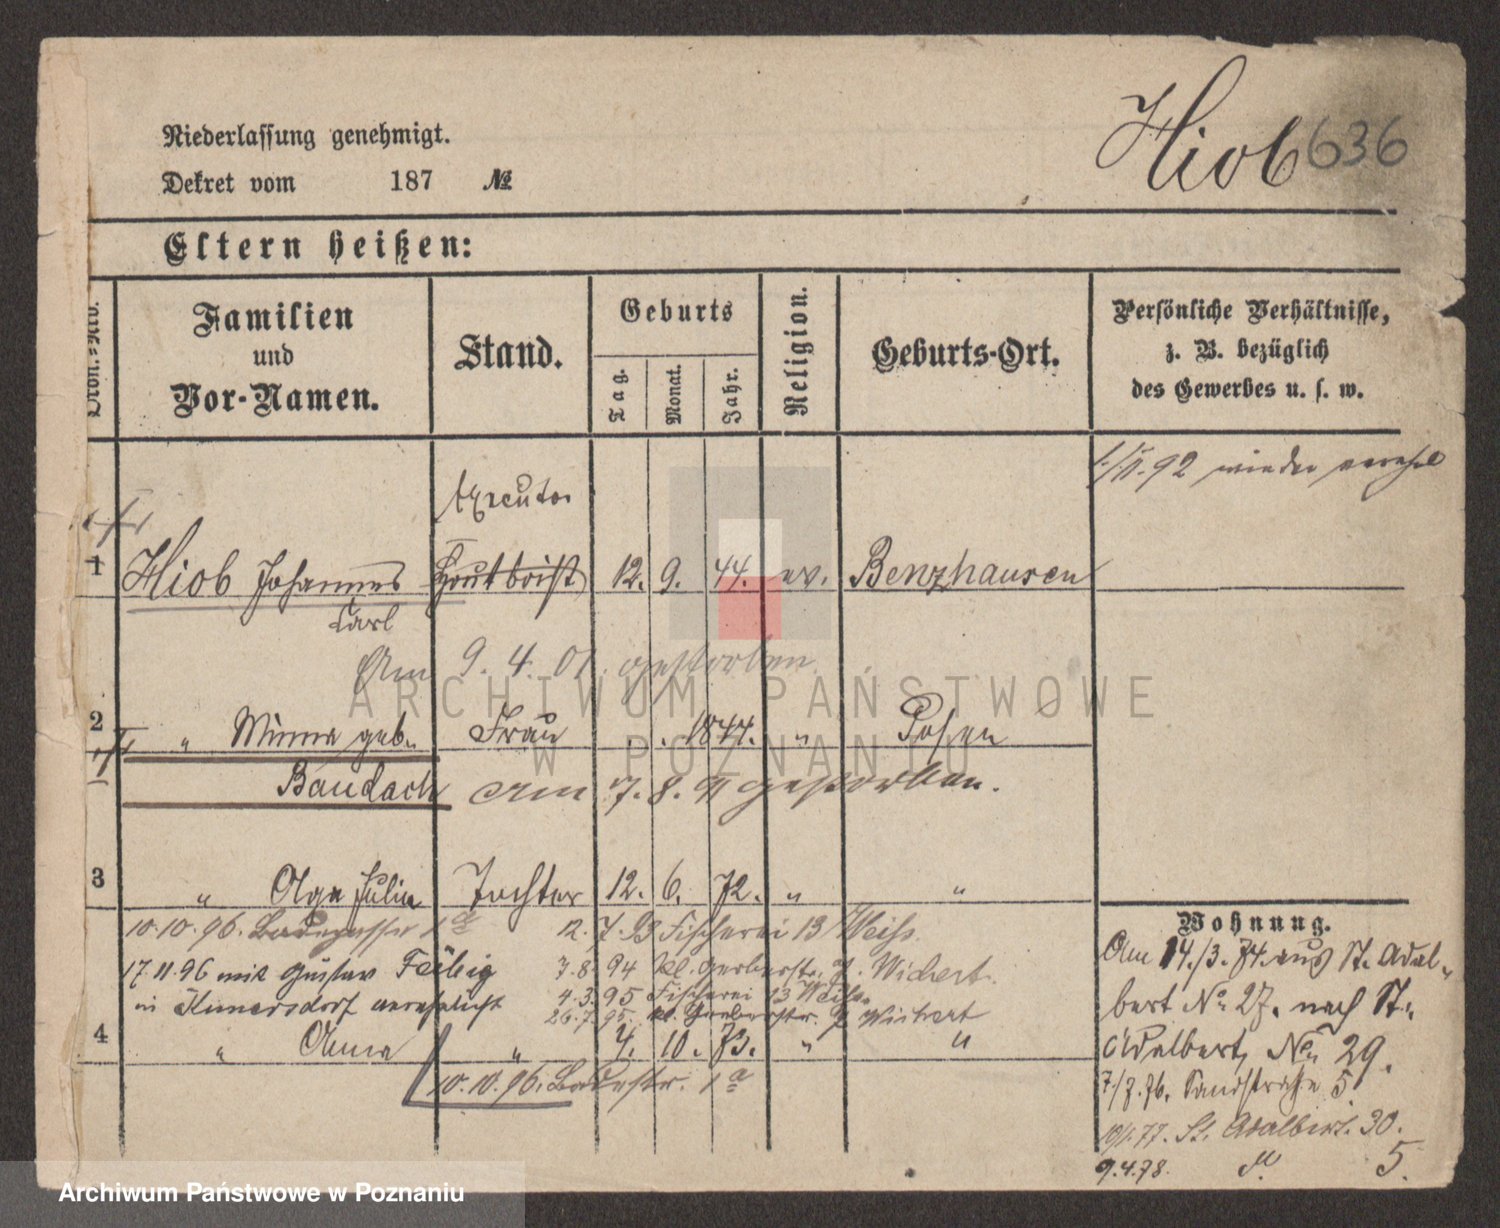 Niederlassung genehmigt.
Hiob 636
Dekret vom 187 №
Eltern heißen:
Familien
und
Vor-Namen.
Stand.
Geburts
Tag.
Monat.
Jahr.
Religion.
Geburts-Ort.
Persönliche Verhältnisse,
z. B. bezüglich
des Gewerbes u. s. w.
92 wieder verehel
Executor
1 Hiob Johannes 12. 9. 44. ev. Benzhausen
Carl
Am 9. 4. 01 gestorben
2 " Minna geb. Frau 1844. " Posen
Baudach am 7. 8. 91 gestorben.
3 " Olga Julia Tochter 12. 6. 72. " "
10.10.96. Badegasse 1 a 12. 7. 93 Fischerei 13 Weiss.
17.11.96 mit Gustav 7.8. 94 Kl. Gerberstr. 7. Wichert
in Kunersdorf verehelicht 4.3. 95 Fischerei 13 Weiss.
26.7. 95. Kl. Gerberstr. 7 Wichert
4 " Anna " 4. 10. 73. " "
10.10.96. Badestr. 1 a
Wohnung.
Am 14./3. 74. aus St. Adal-
bert No 27. nach St.
Adalbert, No 29.
7/7. 76. Sandstraße 5.
77. St. Adalbert. 30.
9.4.78. 5.
ARCHIWUM PAŃSTWOWE
W POZNANIU
Archiwum Państwowe w Poznaniu